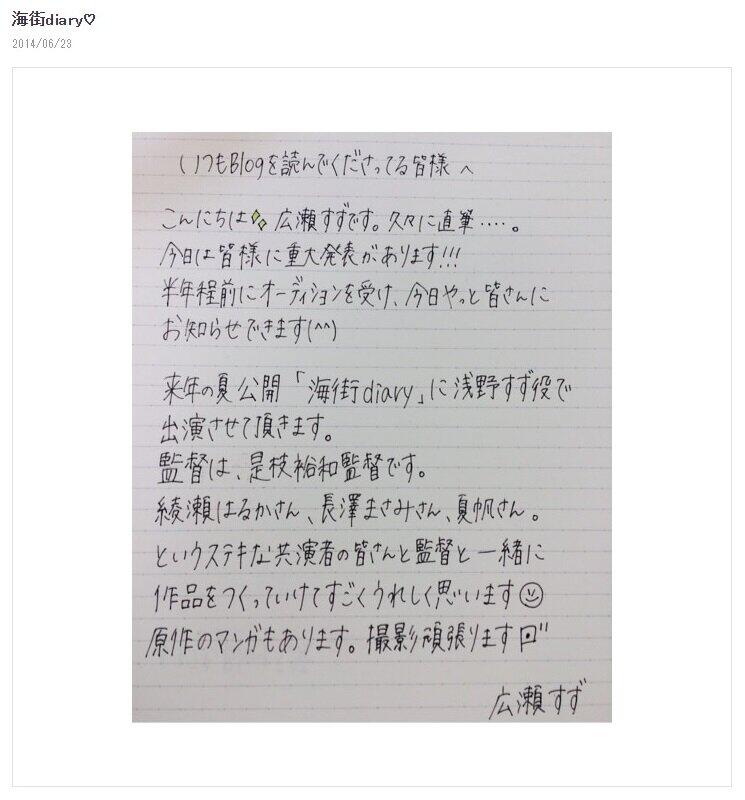 海街diary♡
2014/06/23
いつもBlogを読んでくださってる皆様へ
こんにちは 広瀬すずです。久々に直筆‥‥。
今日は皆様に重大発表があります!!!
半年程前にオーディションを受け、今日やっと皆さんに
お知らせできます(^^)
来年の夏公開「海街diary」に浅野すず役で
出演させて頂きます。
監督は、是枝裕和監督です。
綾瀬はるかさん、長澤まさみさん、夏帆さん。
というステキな共演者の皆さんと監督と一緒に
作品をつくっていけてすごくうれしく思います☺
原作のマンガもあります。撮影頑張ります
広瀬すず